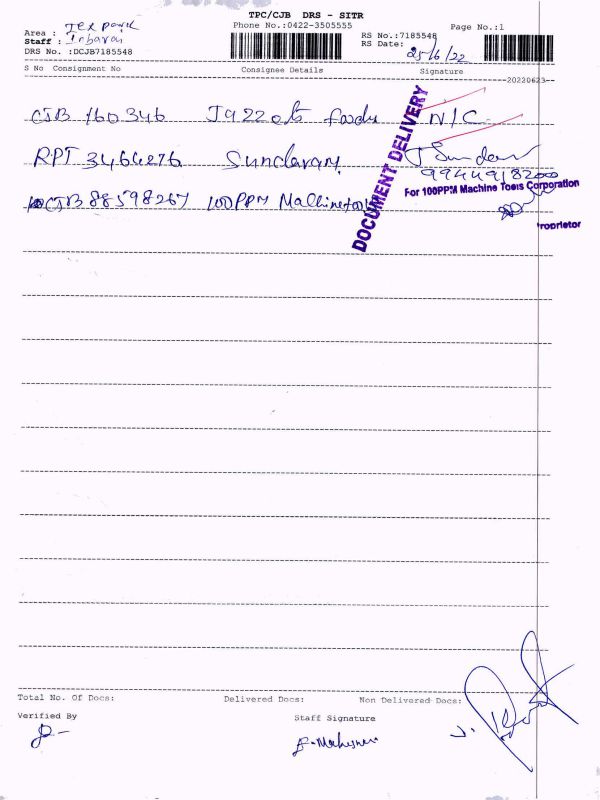 TPC/CJB DRS - SITR
Phone No.:0422-3505555
Page No.:1
Area : Tex park
Staff : Inbaraj
DRS No. :DCJB7185548
RS No.:7185548
RS Date: 25/6/22
S No Consignment No Consignee Details Signature
20220623
CJB 160346 foods N/C
RPT 3464276 Sundaram J Sundar
9944918200
CJB 88598267 100PPM Machinetools
DOCUMENT DELIVERY
For 100PPM Machine Tools Corporation
Proprietor
Total No. Of Docs: Delivered Docs: Non Delivered Docs:
Verified By Staff Signature